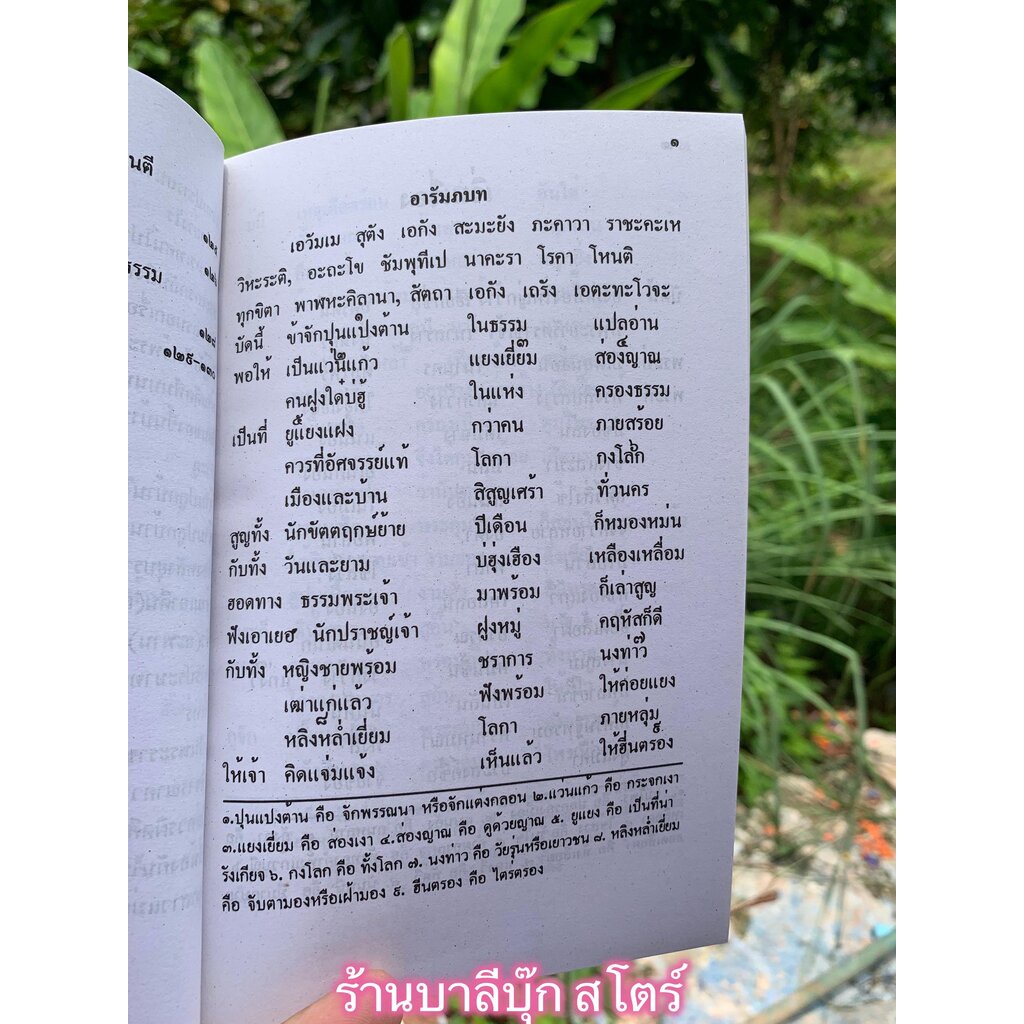 นตี
๑๒๕
ธรรม
๑๒๘
๑๒๙-๑๓๐
๑
อารัมภบท
เอวัมเม สุตัง เอกัง สะมะยัง ภะคาวา ราชะคะเห
วิหะระติ, อะถะโข ชัมพุทีเป นาคะรา โรคา โหนติ
ทุกขิตา พาฬหะคิลานา, สัตถา เอกัง เถรัง เอตะทะโวจะ
บัดนี้ ข้าจักปุนแป๑งต้าน ในธรรม แปลอ่าน
พอให้ เป็นแวน๒แก้ว แยงเยี่ยม๓ ส่อง๔ญาณ
คนฝูงใด๋บ่ฮู้ ในแห่ง ครองธรรม
เป็นที่ ยู๕แยงแฝง กว่าคน ภายสร้อย
ควรที่อัศจรรย์แท้ โลกา กงโลก๖
เมืองและบ้าน สิสูญเศร้า ทั่วนคร
สูญทั้ง นักขัตตฤกษ์ย้าย ปีเดือน ก็หมองหม่น
กับทั้ง วันและยาม บ่ฮุงเฮือง เหลืองเหลื่อม
ฮอดทาง ธรรมพระเจ้า มาพร้อม ก็เล่าสูญ
ฟังเอาเยฮ นักปราชญ์เจ้า ฝูงหมู่ คฤหัสก็ดี
กับทั้ง หญิงชายพร้อม ชราการ นงท่าว๗
เฒ่าแก่แล้ว ฟังพร้อม ให้ค่อยแยง
หลิง๘หล่ำเยี่ยม โลกา ภายหลุม
ให้เจ้า คิดแจ่มแจ้ง เห็นแล้ว ให้ฮีนตรอง๙
๑.ปุนแปงต้าน คือ จักพรรณนา หรือจักแต่งกลอน ๒.แว่นแก้ว คือ กระจกเงา
๓.แยงเยี่ยม คือ ส่องเงา ๔.ส่องญาณ คือ ดูด้วยญาณ ๕. ยูแยง คือ เป็นที่น่า
รังเกียจ ๖. กงโลก คือ ทั้งโลก ๗. นงท่าว คือ วัยรุ่นหรือเยาวชน ๘. หลิงหล่ำเยี่ยม
คือ จับตามองหรือเฝ้ามอง ๙. ฮีนตรอง คือ ไตร่ตรอง
ร้านบาลีบุ๊ก สโตร์